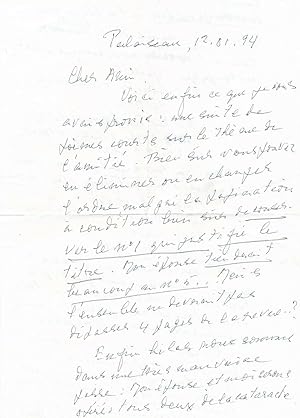 Palaiseau, 12.01.94
Cher Ami.
Voici enfin ce que je vous
avais promis : une suite de
poèmes courts sur le thème de
l'amitié. Bien sûr vous pouvez
en éliminer ou en changer
l'ordre malgré la
à condition bien sûr de conser-
ver le n°1 qui justifie le
titre. Mon épouse tiendrait
beaucoup au n° 5.. Mais
l'ensemble ne devrait pas
dépasser 4 pages de la revue..?
Enfin hélas nous sommes
dans une très mauvaise
passe : Mon épouse et moi serons
opérés tous deux de la cataracte